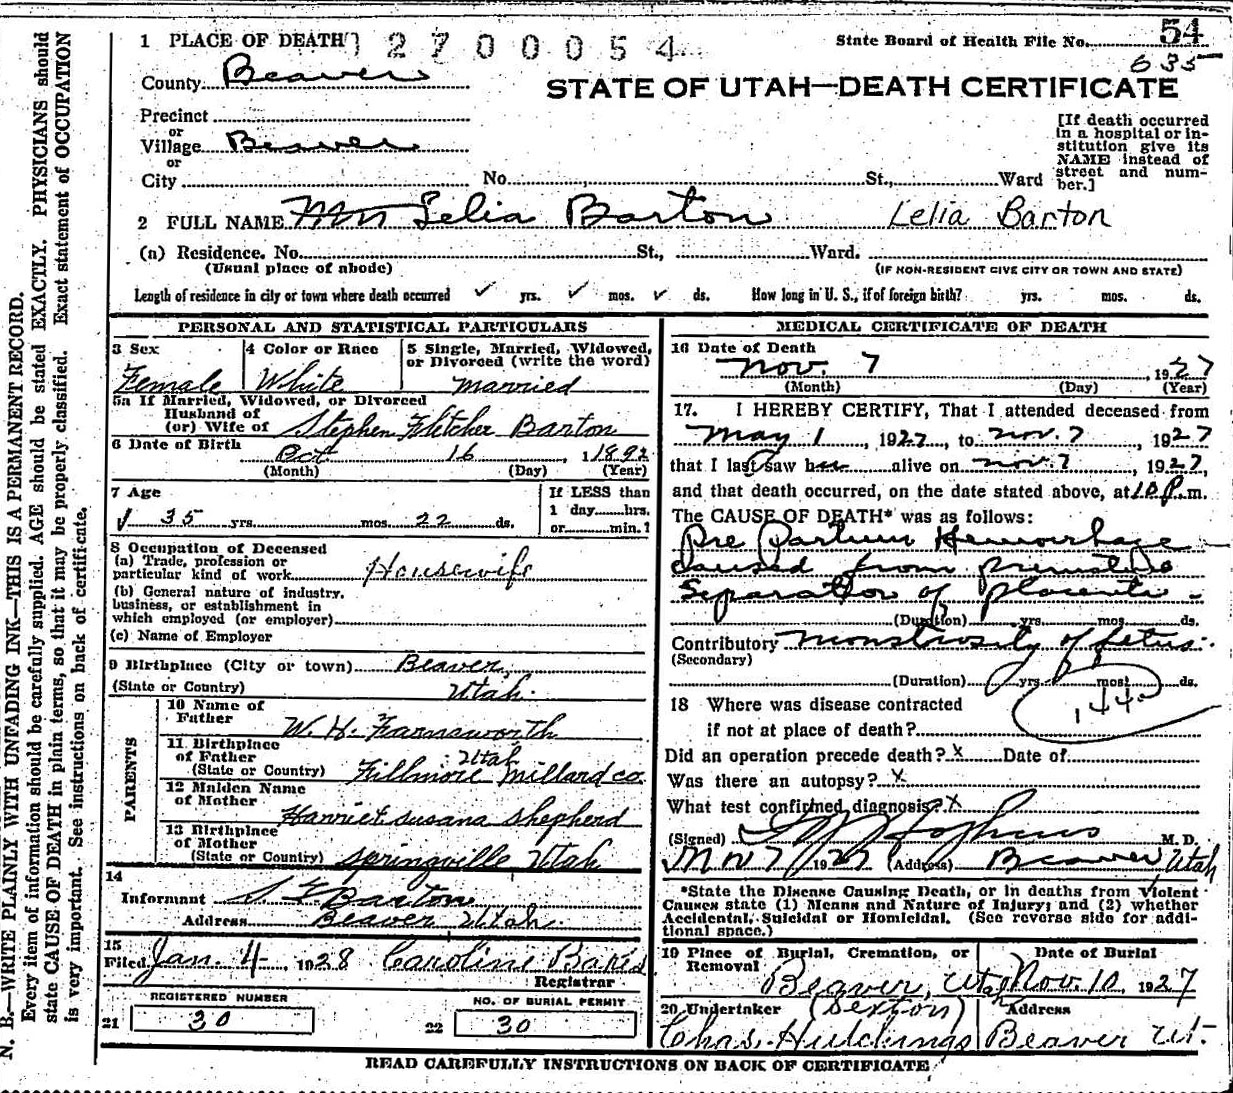 1 PLACE OF DEATH 2700054
State Board of Health File No. 54
635
County Beaver
STATE OF UTAH—DEATH CERTIFICATE
Precinct
or
Village Beaver
or
City No. St., Ward
[If death occurred
in a hospital or in-
stitution give its
NAME instead of
street and num-
ber.]
2 FULL NAME Mrs Lelia Barton Lelia Barton
(a) Residence. No. St., Ward.
(Usual place of abode) (IF NON-RESIDENT GIVE CITY OR TOWN AND STATE)
Length of residence in city or town where death occurred ✓ yrs. ✓ mos. ✓ ds. How long in U. S., if of foreign birth? yrs. mos. ds.
PERSONAL AND STATISTICAL PARTICULARS
3 Sex
Female
4 Color or Race
White
5 Single, Married, Widowed,
or Divorced (write the word)
Married
5a If Married, Widowed, or Divorced
Husband of
(or) Wife of Stephen Fletcher Barton
6 Date of Birth Oct 16 1 1892
(Month) (Day) (Year)
7 Age
✓ 35 yrs. mos. 22 ds.
If LESS than
1 day hrs.
or min.?
8 Occupation of Deceased
(a) Trade, profession or
particular kind of work Housewife
(b) General nature of industry,
business, or establishment in
which employed (or employer)
(c) Name of Employer
9 Birthplace (City or town) Beaver,
(State or Country) Utah.
PARENTS
10 Name of
Father W. H. Farnsworth
11 Birthplace
of Father Utah
(State or Country) Fillmore Millard co.
12 Maiden Name
of Mother Harriet Susana Shepherd
13 Birthplace
of Mother
(State or Country) Springville Utah
14
Informant S. F. Barton
Address Beaver Utah.
15
Filed Jan. 4, 1928 Caroline
Registrar
REGISTERED NUMBER
21 30
NO. OF BURIAL PERMIT
22 30
MEDICAL CERTIFICATE OF DEATH
16 Date of Death
Nov. 7, 1927
(Month) (Day) (Year)
17. I HEREBY CERTIFY, That I attended deceased from
May 1, 1927, to Nov. 7, 1927
that I last saw her alive on Nov. 7, 1927,
and that death occurred, on the date stated above, at 10 P.m.
The CAUSE OF DEATH* was as follows:
Pre Partum Hemorrhage
caused from
Separation of placenta -
(Duration) yrs. mos. ds.
Contributory monstrosity of fetus.
(Secondary)
(Duration) yrs. mos. ds.
144
18 Where was disease contracted
if not at place of death?
Did an operation precede death? x Date of
Was there an autopsy? x
What test confirmed diagnosis? x
(Signed) M. D.
Nov 7, 1927 (Address) Beaver Utah
*State the Disease Causing Death, or in deaths from Violent
Causes state (1) Means and Nature of Injury; and (2) whether
Accidental, Suicidal or Homicidal. (See reverse side for addi-
tional space.)
19 Place of Burial, Cremation, or
Removal
Beaver, Utah
Date of Burial
Nov. 10, 1927
20 Undertaker (Sexton)
Chas. Hutchings
Address
Beaver Ut.
READ CAREFULLY INSTRUCTIONS ON BACK OF CERTIFICATE
N. B.—WRITE PLAINLY WITH UNFADING INK—THIS IS A PERMANENT RECORD.
Every item of information should be carefully supplied. AGE should be stated EXACTLY. PHYSICIANS should
state CAUSE OF DEATH in plain terms, so that it may be properly classified. Exact statement of OCCUPATION
is very important. See instructions on back of certificate.